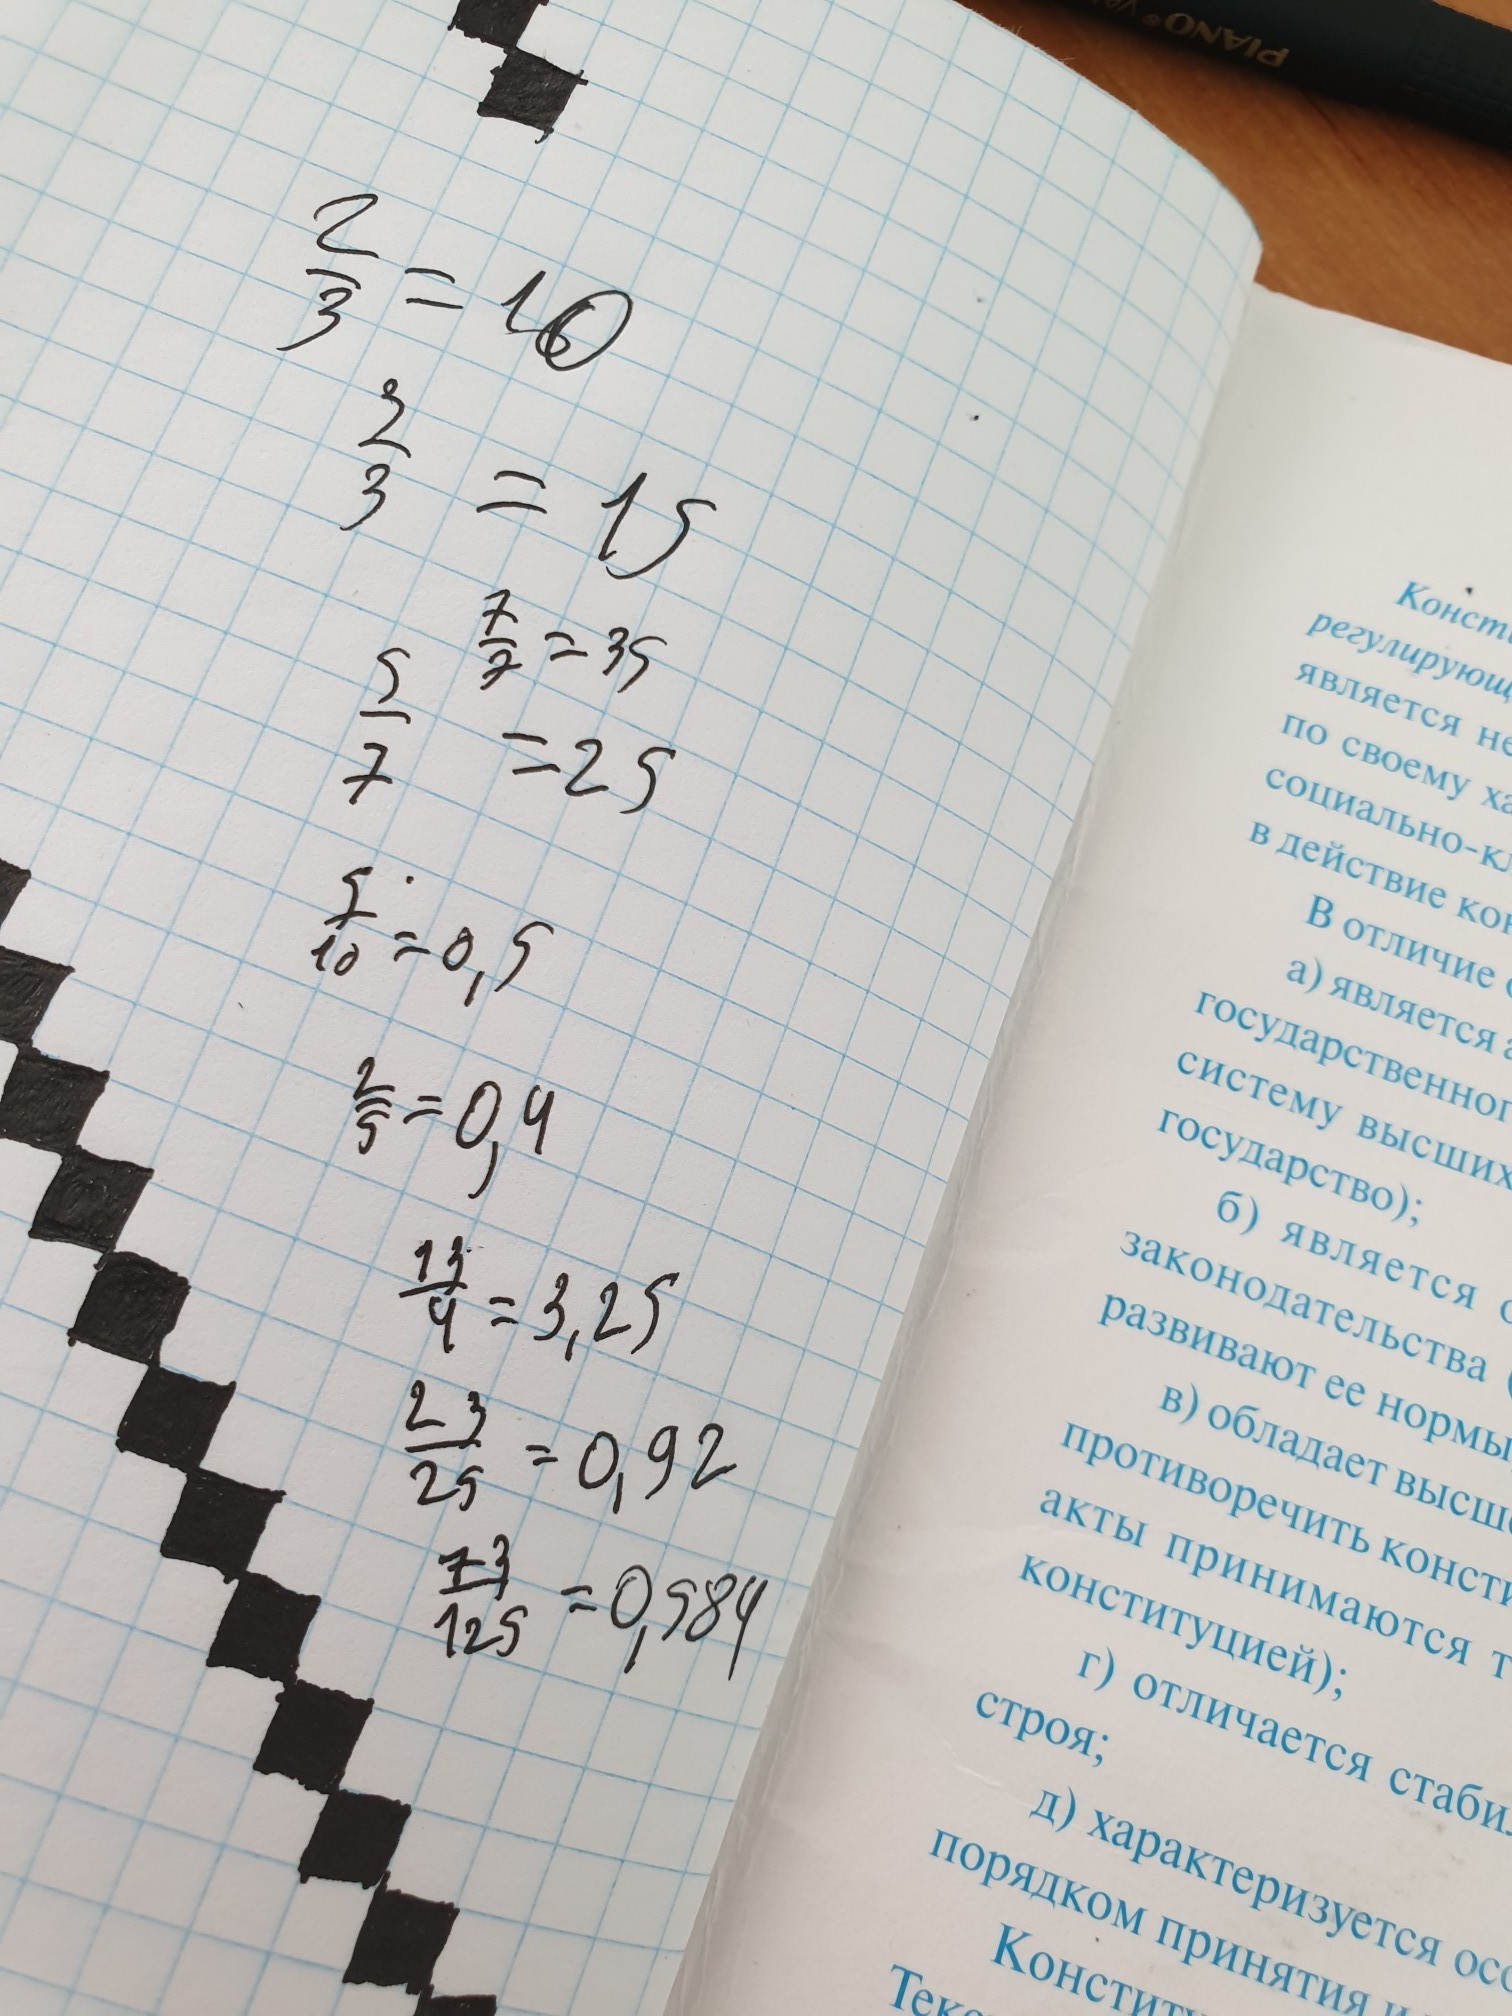 PIANO
2/3 = 10
2/3 = 15
7/7 = 35
5/7 = 25
5/10 = 0,5
2/5 = 0,4
13/4 = 3,25
23/25 = 0,92
73/125 = 0,584
регулирующ
является не
по своему ха
социально-кл
в действие кон
В отличие
а) является
государственног
систему высших
государство);
б) является
законодательства
развивают ее нормы,
в) обладает высше
противоречить консти
акты принимаются
конституцией);
г) отличается стабил
строя;
д) характеризуется осо
порядком принятия и
Конститу